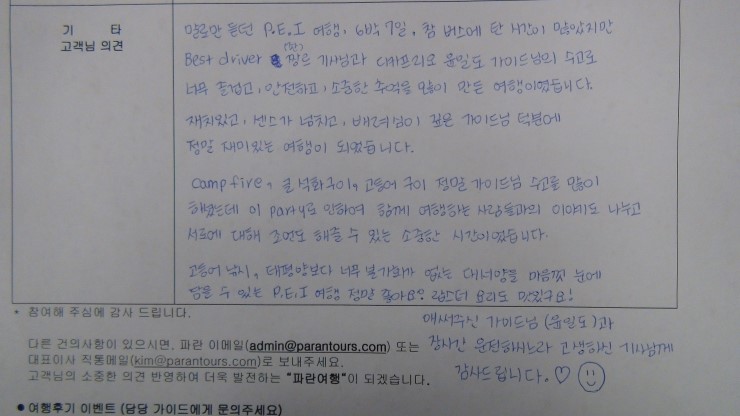 기 타
고객님 의견
말로만 듣던 P.E.I 여행, 6박 7일, 참 버스에 탄 시간이 많았지만
Best driver (한) 쟝르 기사님과 디카프리오 윤일도 가이드님의 수고로
너무 즐겁고, 안전하고, 소중한 추억을 많이 만든 여행이었습니다.
재치있고, 센스가 넘치고, 배려심이 깊은 가이드님 덕분에
정말 재미있는 여행이 되었습니다.
campfire, 굴 석화구이, 고등어 구이 정말 가이드님 수고를 많이
해줬는데 이 party로 인하여 함께 여행하는 사람들과의 이야기도 나누고
서로에 대해 조언도 해줄 수 있는 소중한 시간이었습니다.
고등어 낚시, 태평양보다 너무 볼가치가 있는 대서양을 마음껏 눈에
담을 수 있는 P.E.I 여행 정말 좋아요! 랍스터 요리도 맛있구요!
애써주신 가이드님 (윤일도)과
장시간 운전하시느라 고생하신 기사님께
감사드립니다.
* 참여해 주심에 감사 드립니다.
다른 건의사항이 있으시면, 파란 이메일(admin@parantours.com) 또는
대표이사 직통메일(kim@parantours.com)로 보내주세요.
고객님의 소중한 의견 반영하여 더욱 발전하는 "파란여행"이 되겠습니다.
● 여행후기 이벤트 (담당 가이드에게 문의주세요)